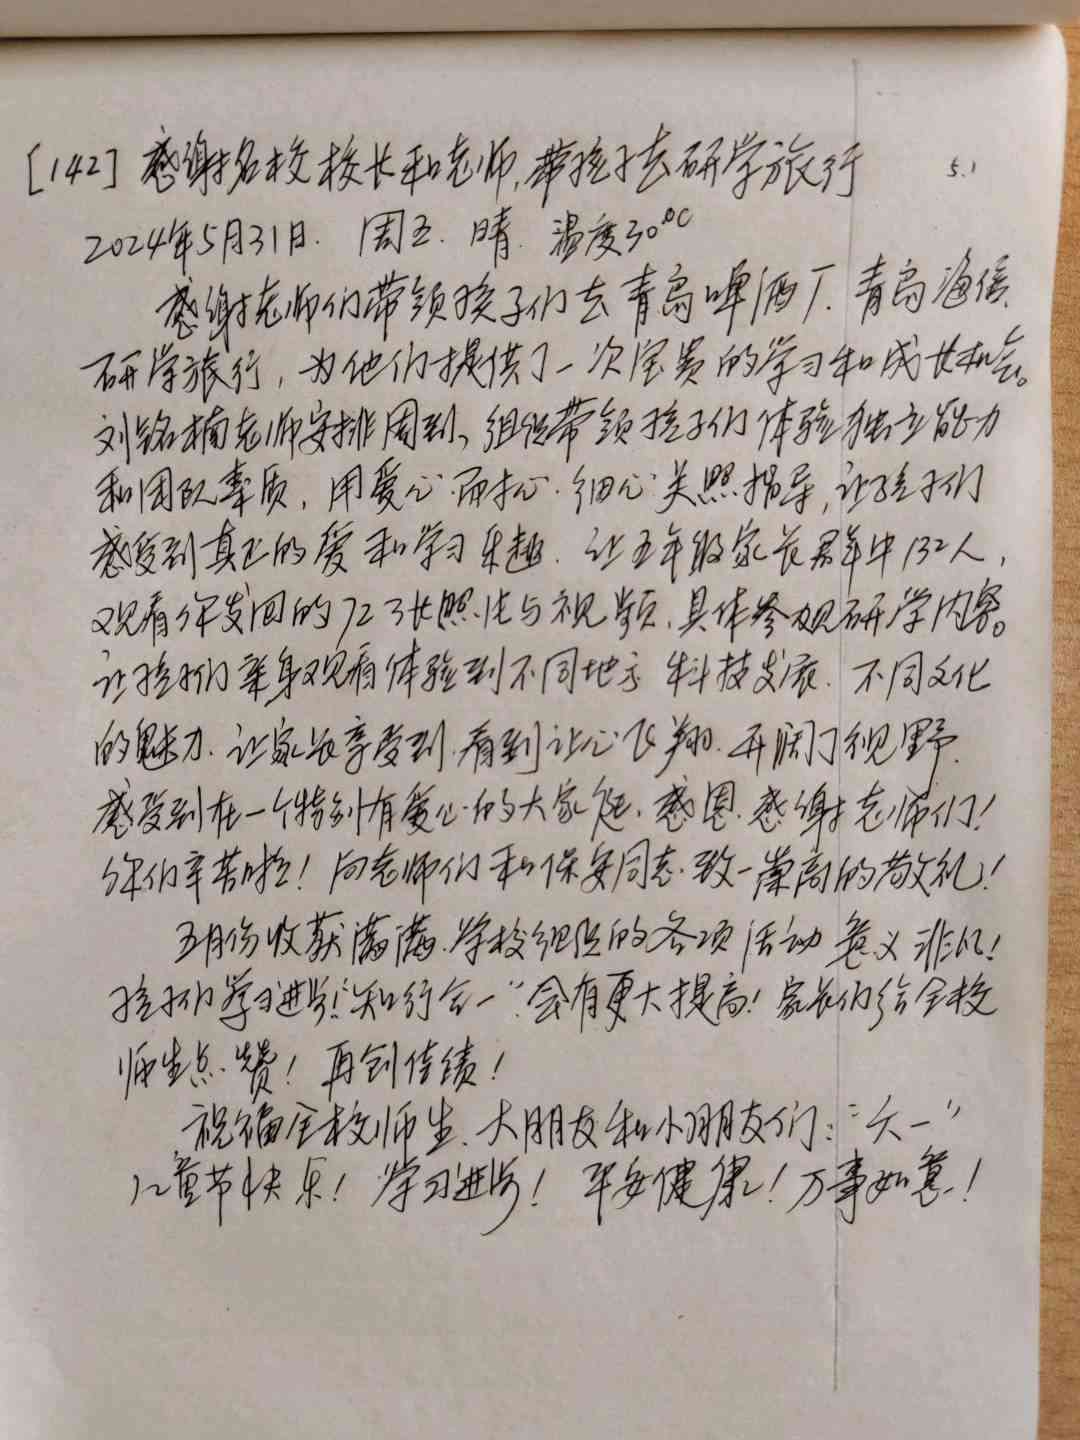 [142] 感谢名校校长和老师,带孩子去研学旅行
5.1
2024年5月31日. 周五. 晴. 温度30°C
感谢老师们带领孩子们去青岛啤酒厂.青岛海信、
研学旅行,为他们提供了一次宝贵的学习和成长机会。
刘铭楠老师安排周到、组织带领孩子们体验独立能力
和团队素质,用爱心.耐心.细心关照指导,让孩子们
感受到真正的爱和学习乐趣.让五年级家长群中132人,
观看你发回的723张照片与视频,具体参观研学内容。
让孩子们亲身观看体验到不同地方科技发展.不同文化
的魅力.让家长享受到.看到让心飞翔.开阔了视野.
感受到在一个特别有爱心的大家庭.感恩.感谢老师们!
你们辛苦啦!向老师们和保安同志.致一崇高的敬礼!
五月份收获满满.学校组织的各项活动意义非凡!
孩子们学习进步!“知行合一”会有更大提高!家长们给全校
师生点赞!再创佳绩!
祝福全校师生、大朋友和小朋友们:“六一”
儿童节快乐!学习进步!平安健康!万事如意!